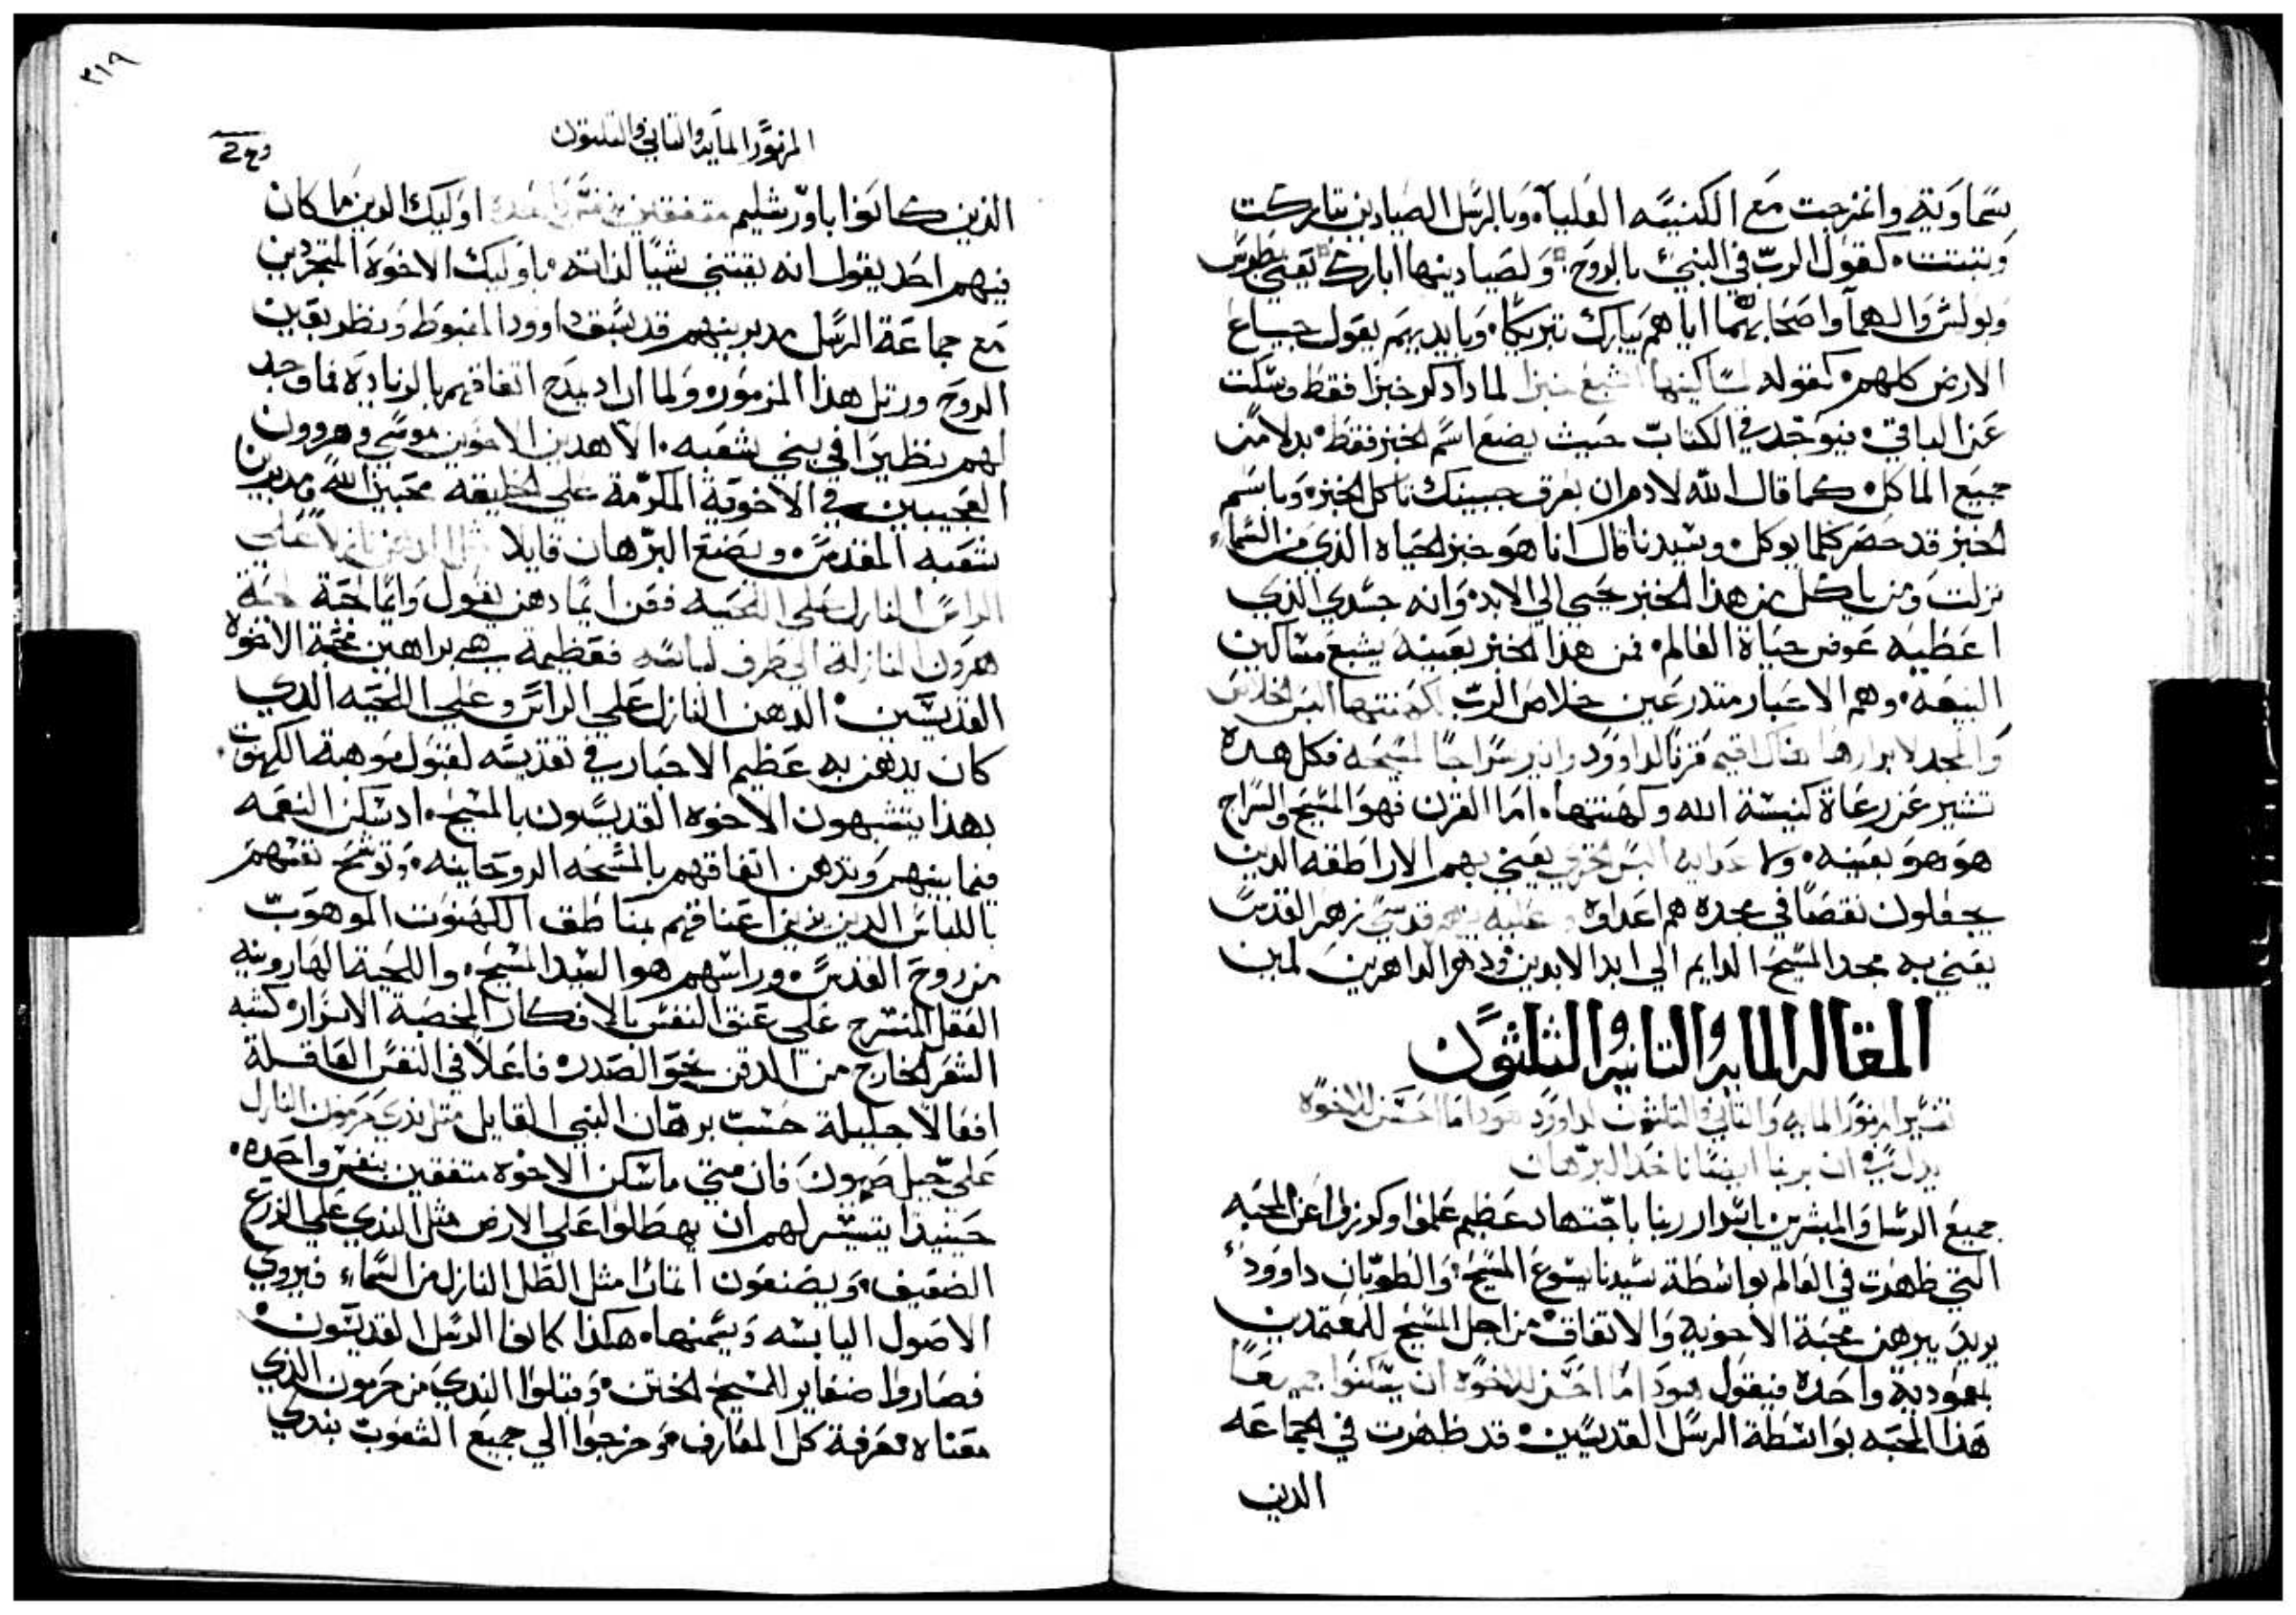 سماوية وامتزجت مع الكنيسه العلياه وبالرسل الصيادين تباركت
وتبتت كقول الرب في النبي بالروح ولصيادينها ابارك يعني بطرس
وبولس والهما واصحابهما اياهم يبارك تبريكًا وبايديهم يقول جياع
الارض كلهم كقوله لمساكينها اشبع خبزا لمادا دكر خبزا فقط وسكت
عن الباقي فيوخد في الكتاب حيث يضع اسم الخبز فقط بدلا من
جميع الماكل كما قال الله لادم ان بعرق جبينك تاكل الخبز وباسم
الخبز قد حصر كلما يوكل وسيدنا قال انا هو خبز الحياه الذي من السماء
نزلت ومن ياكل من هذا الخبز يحيى الي الابد وانه جسدي الذي
اعطيه عوض حياة العالم فمن هذا الخبز بعينه يشبع مساكين
البيعه وهم الاحبار متدرعين خلاص الرب كهنتها البس الخلاص
والمجد لابرارها هناك اقيم قرنا لداوود وانير سراجا لمسيحه فكل هده
تشير عن رعاة كنيسة الله وكهنتها اما القرن فهو المسيح والسراج
هو هو بعينه ولاعدايه البس الخزي يعني بهم الاراطقه الدين
يجعلون نقصا في مجده هم اعداوه وعليه يزهر قدسي زهر القدس
يعني به مجد المسيح الدايم الي ابد الابدين ودهر الداهرين امين
المقاله المايه والتانيه والتلتون
تفسير المزمور المايه والتاني والتلتون لداوود هودا ما احسن للاخوه
يدل به ان يرينا ايضا ناخد البرهان
جميع الرسل والمبشرين باسرار ربنا باجتهاد عظيم علموا وكرزوا عن المحبه
التي ظهرت في العالم بواسطة سيدنا يسوع المسيح والطوبان داوود
يريد يبرهن محبة الاخويه والاتفاق من اجل المسيح للمعتمدين
بمعودية واحدة فيقول هودا ما احسن للاخوه ان يسكنوا جميعا
هذا المحبه بواسطة الرسل القديسين قد ظهرت في الجماعه
الدين
٣١٩
المزمور المايه والتاني والتلتون
الذين كانوا باورشليم متفقين اوليك الدين ما كان
فيهم احد يقول انه يقتني شيا لذاته باوليك الاخوة المتجردين
مع جماعة الرسل مدبرينهم قد سبق داوود المغبوط ونظر بعين
الروح ورتل هذا المزمور ولما اراد يمدح اتفاقهم بالزيادة فما وجد
لهم نظيرا في بني شعبه الا هدين الاخوين موسى وهرون
العجيبين في الاخوية المكرمة علي الخليقه محبين الله مدبرين
شعبه المقدس ويضع البرهان قايلا مثل الدهن نازلا علي
الراس النازل علي اللحيه فعن ايما دهن يقول وايما لحية لحية
هرون النازلة الي طرف لباسه فعظيمة هي براهين محبة الاخوة
القديسين الدهن النازل علي الراس وعلي اللحيه الذي
كان يدهن به عظيم الاحبار في تقديسه لقبول موهبة الكهنوت
بهذا يتشبهون الاخوه القديسون بالمسيح اد تسكن النعمه
فيما بينهم وتدهن اتفاقهم بالمسحه الروحانيه وتوشح نفسهم
باللباس الدين يزين اعناقهم بمناطق الكهنوت الموهوب
من روح القدس وراسهم هو السيد المسيح واللحية الهارونيه
العقل المنسرح علي عنق النفس بالافكار المخصبة الابرار كشبه
الشعر الخارج من الدقن نحو الصدر فاعلا في النفس العاقلة
افعالا جليلة حسب برهان النبي القايل مثل ندي حرمون النازل
علي جبل صهيون فان متي ما سكن الاخوة متفقين بنفس واحده
حينيدا يتيسر لهم ان يهطلوا علي الارض مثل الندي علي الزرع
الضعيف ويصنعون اتمارا مثل الطل النازل من السماء فيروي
الاصول اليابسه ويسمنها هكذا كانوا الرسل القديسون
فصاروا ضفاير للمسيح الختن ومتلوا الندي من حرمون الذي
معناه معرفة كل المعارف وخرجوا الي جميع الشعوب بندي